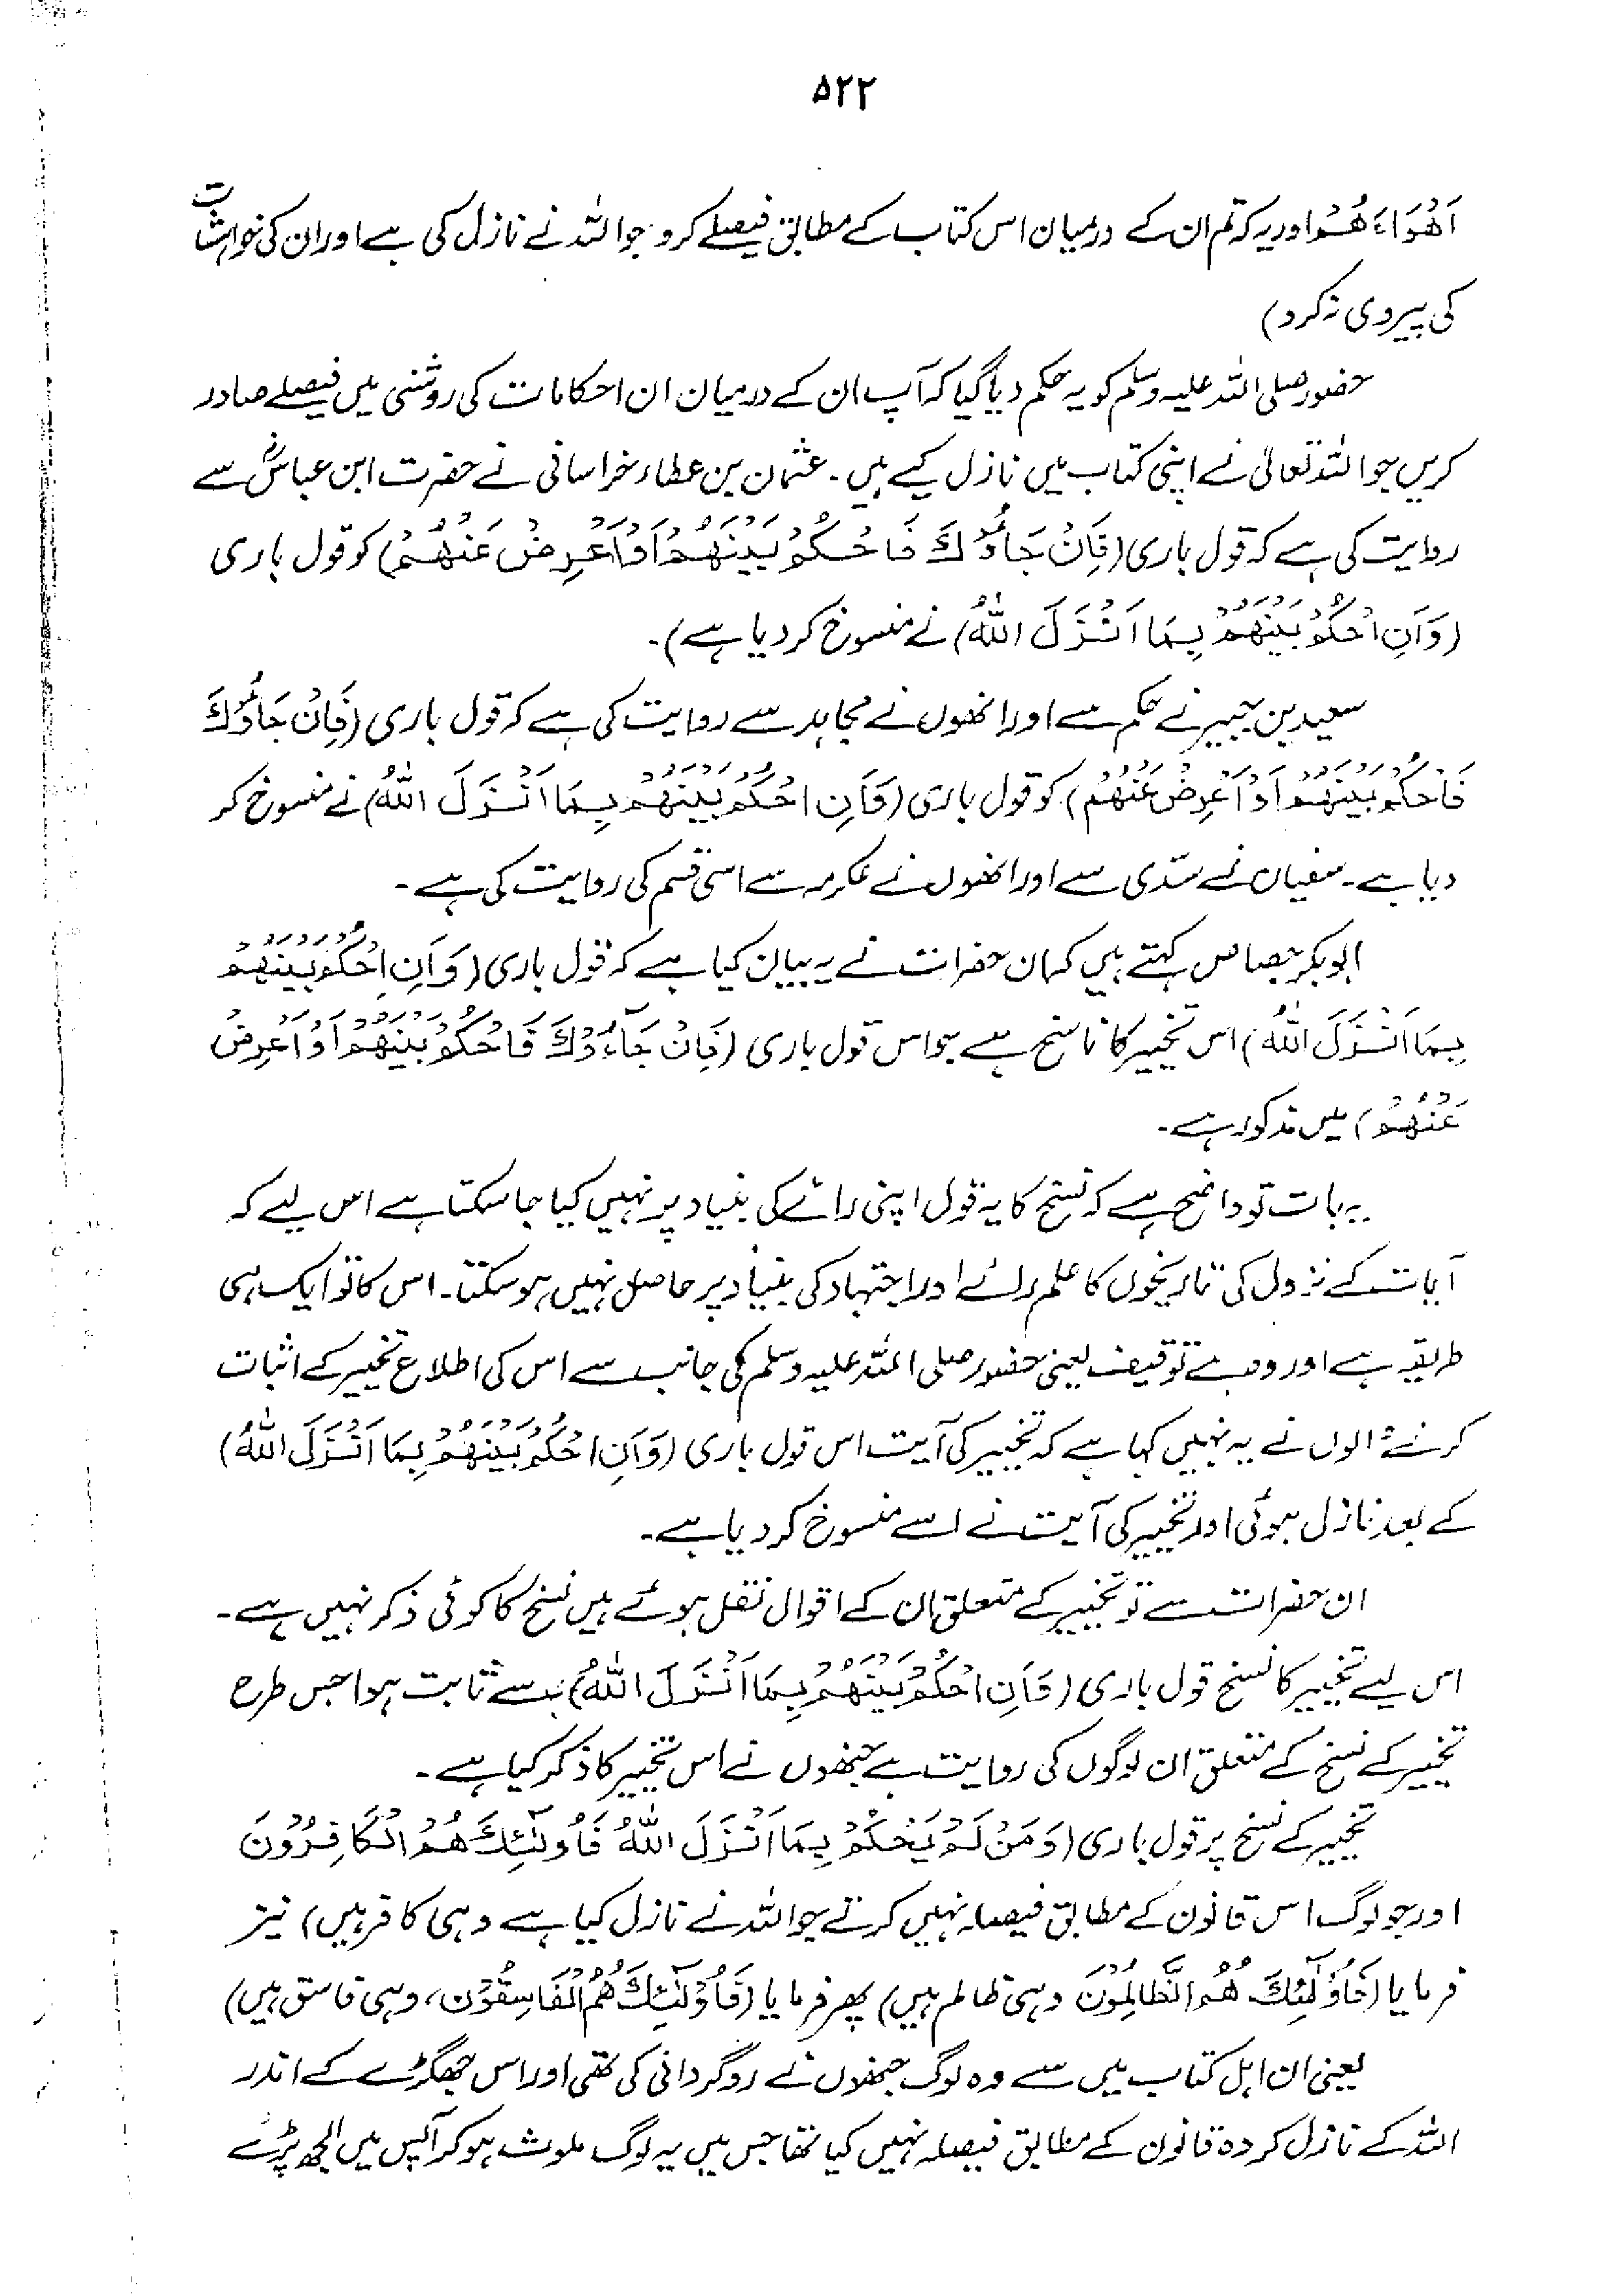 ۵۲۲
اَهْوَاءَهُمْ اور یہ کہ تم ان کے درمیان اس کتاب کے مطابق فیصلے کرو جو اللہ نے نازل کی ہے اور ان کی خواہشات
کی پیروی نہ کرو)
حضور صلی اللہ علیہ وسلم کو یہ حکم دیا گیا کہ آپ ان کے درمیان ان احکامات کی روشنی میں فیصلے صادر
کریں جو اللہ تعالیٰ نے اپنی کتاب میں نازل کیے ہیں۔ عثمان بن عطاء خراسانی نے حضرت ابن عباسؓ سے
روایت کی ہے کہ قول باری (فَاِنْ جَاءُوْكَ فَاحْكُمْ بَيْنَهُمْ اَوْ اَعْرِضْ عَنْهُمْ) کو قول باری
(وَاَنِ احْكُمْ بَيْنَهُمْ بِمَا اَنْزَلَ اللّٰهُ) نے منسوخ کر دیا ہے)۔
سعید بن جبیر نے حکم سے اور انھوں نے مجاہد سے روایت کی ہے کہ قول باری (فَاِنْ جَاءُوْكَ
فَاحْكُمْ بَيْنَهُمْ اَوْ اَعْرِضْ عَنْهُمْ) کو قول باری (وَاَنِ احْكُمْ بَيْنَهُمْ بِمَا اَنْزَلَ اللّٰهُ) نے منسوخ کر
دیا ہے۔ سفیان نے سدّی سے اور انھوں نے عکرمہ سے اسی قسم کی روایت کی ہے۔
ابوبکر جصاص کہتے ہیں کہ ان حضرات نے یہ بیان کیا ہے کہ قول باری (وَاَنِ احْكُمْ بَيْنَهُمْ
بِمَا اَنْزَلَ اللّٰهُ) اس تخییر کا ناسخ ہے جو اس قول باری (فَاِنْ جَآءُوْكَ فَاحْكُمْ بَيْنَهُمْ اَوْ اَعْرِضْ
عَنْهُمْ) میں مذکور ہے۔
یہ بات تو واضح ہے کہ نسخ کا یہ قول اپنی رائے کی بنیاد پر نہیں کیا جا سکتا ہے اس لیے کہ
آیات کے نزول کی تاریخوں کا علم رائے اور اجتہاد کی بنیاد پر حاصل نہیں ہو سکتا۔ اس کا تو ایک ہی
طریقہ ہے اور وہ ہے توقیف یعنی حضور صلی اللہ علیہ وسلم کی جانب سے اس کی اطلاع تخییر کے اثبات
کرنے والوں نے یہ نہیں کہا ہے کہ تخییر کی آیت اس قول باری (وَاَنِ احْكُمْ بَيْنَهُمْ بِمَا اَنْزَلَ اللّٰهُ)
کے بعد نازل ہوئی اور تخییر کی آیت نے اسے منسوخ کر دیا ہے۔
ان حضرات سے تو تخییر کے متعلق ان کے اقوال نقل ہوئے ہیں نسخ کا کوئی ذکر نہیں ہے۔
اس لیے تخییر کا نسخ قول باری (وَاَنِ احْكُمْ بَيْنَهُمْ بِمَا اَنْزَلَ اللّٰهُ) سے ثابت ہوا جس طرح
تخییر کے نسخ کے متعلق ان لوگوں کی روایت ہے جنھوں نے اس تخییر کا ذکر کیا ہے۔
تخییر کے نسخ پر قول باری (وَمَنْ لَمْ يَحْكُمْ بِمَا اَنْزَلَ اللّٰهُ فَاُولٰٓئِكَ هُمُ الْكَافِرُوْنَ
اور جو لوگ اس قانون کے مطابق فیصلہ نہیں کرتے جو اللہ نے نازل کیا ہے وہی کافر ہیں) نیز
فرمایا (فَاُولٰٓئِكَ هُمُ الظَّالِمُوْنَ وہی ظالم ہیں) پھر فرمایا (فَاُولٰٓئِكَ هُمُ الْفَاسِقُوْنَ، وہی فاسق ہیں)
یعنی ان اہل کتاب میں سے وہ لوگ جنھوں نے روگردانی کی تھی اور اس جھگڑے کے اندر
اللہ کے نازل کردہ قانون کے مطابق فیصلہ نہیں کیا تھا جس میں یہ لوگ ملوث ہو کر آپس میں الجھ پڑے